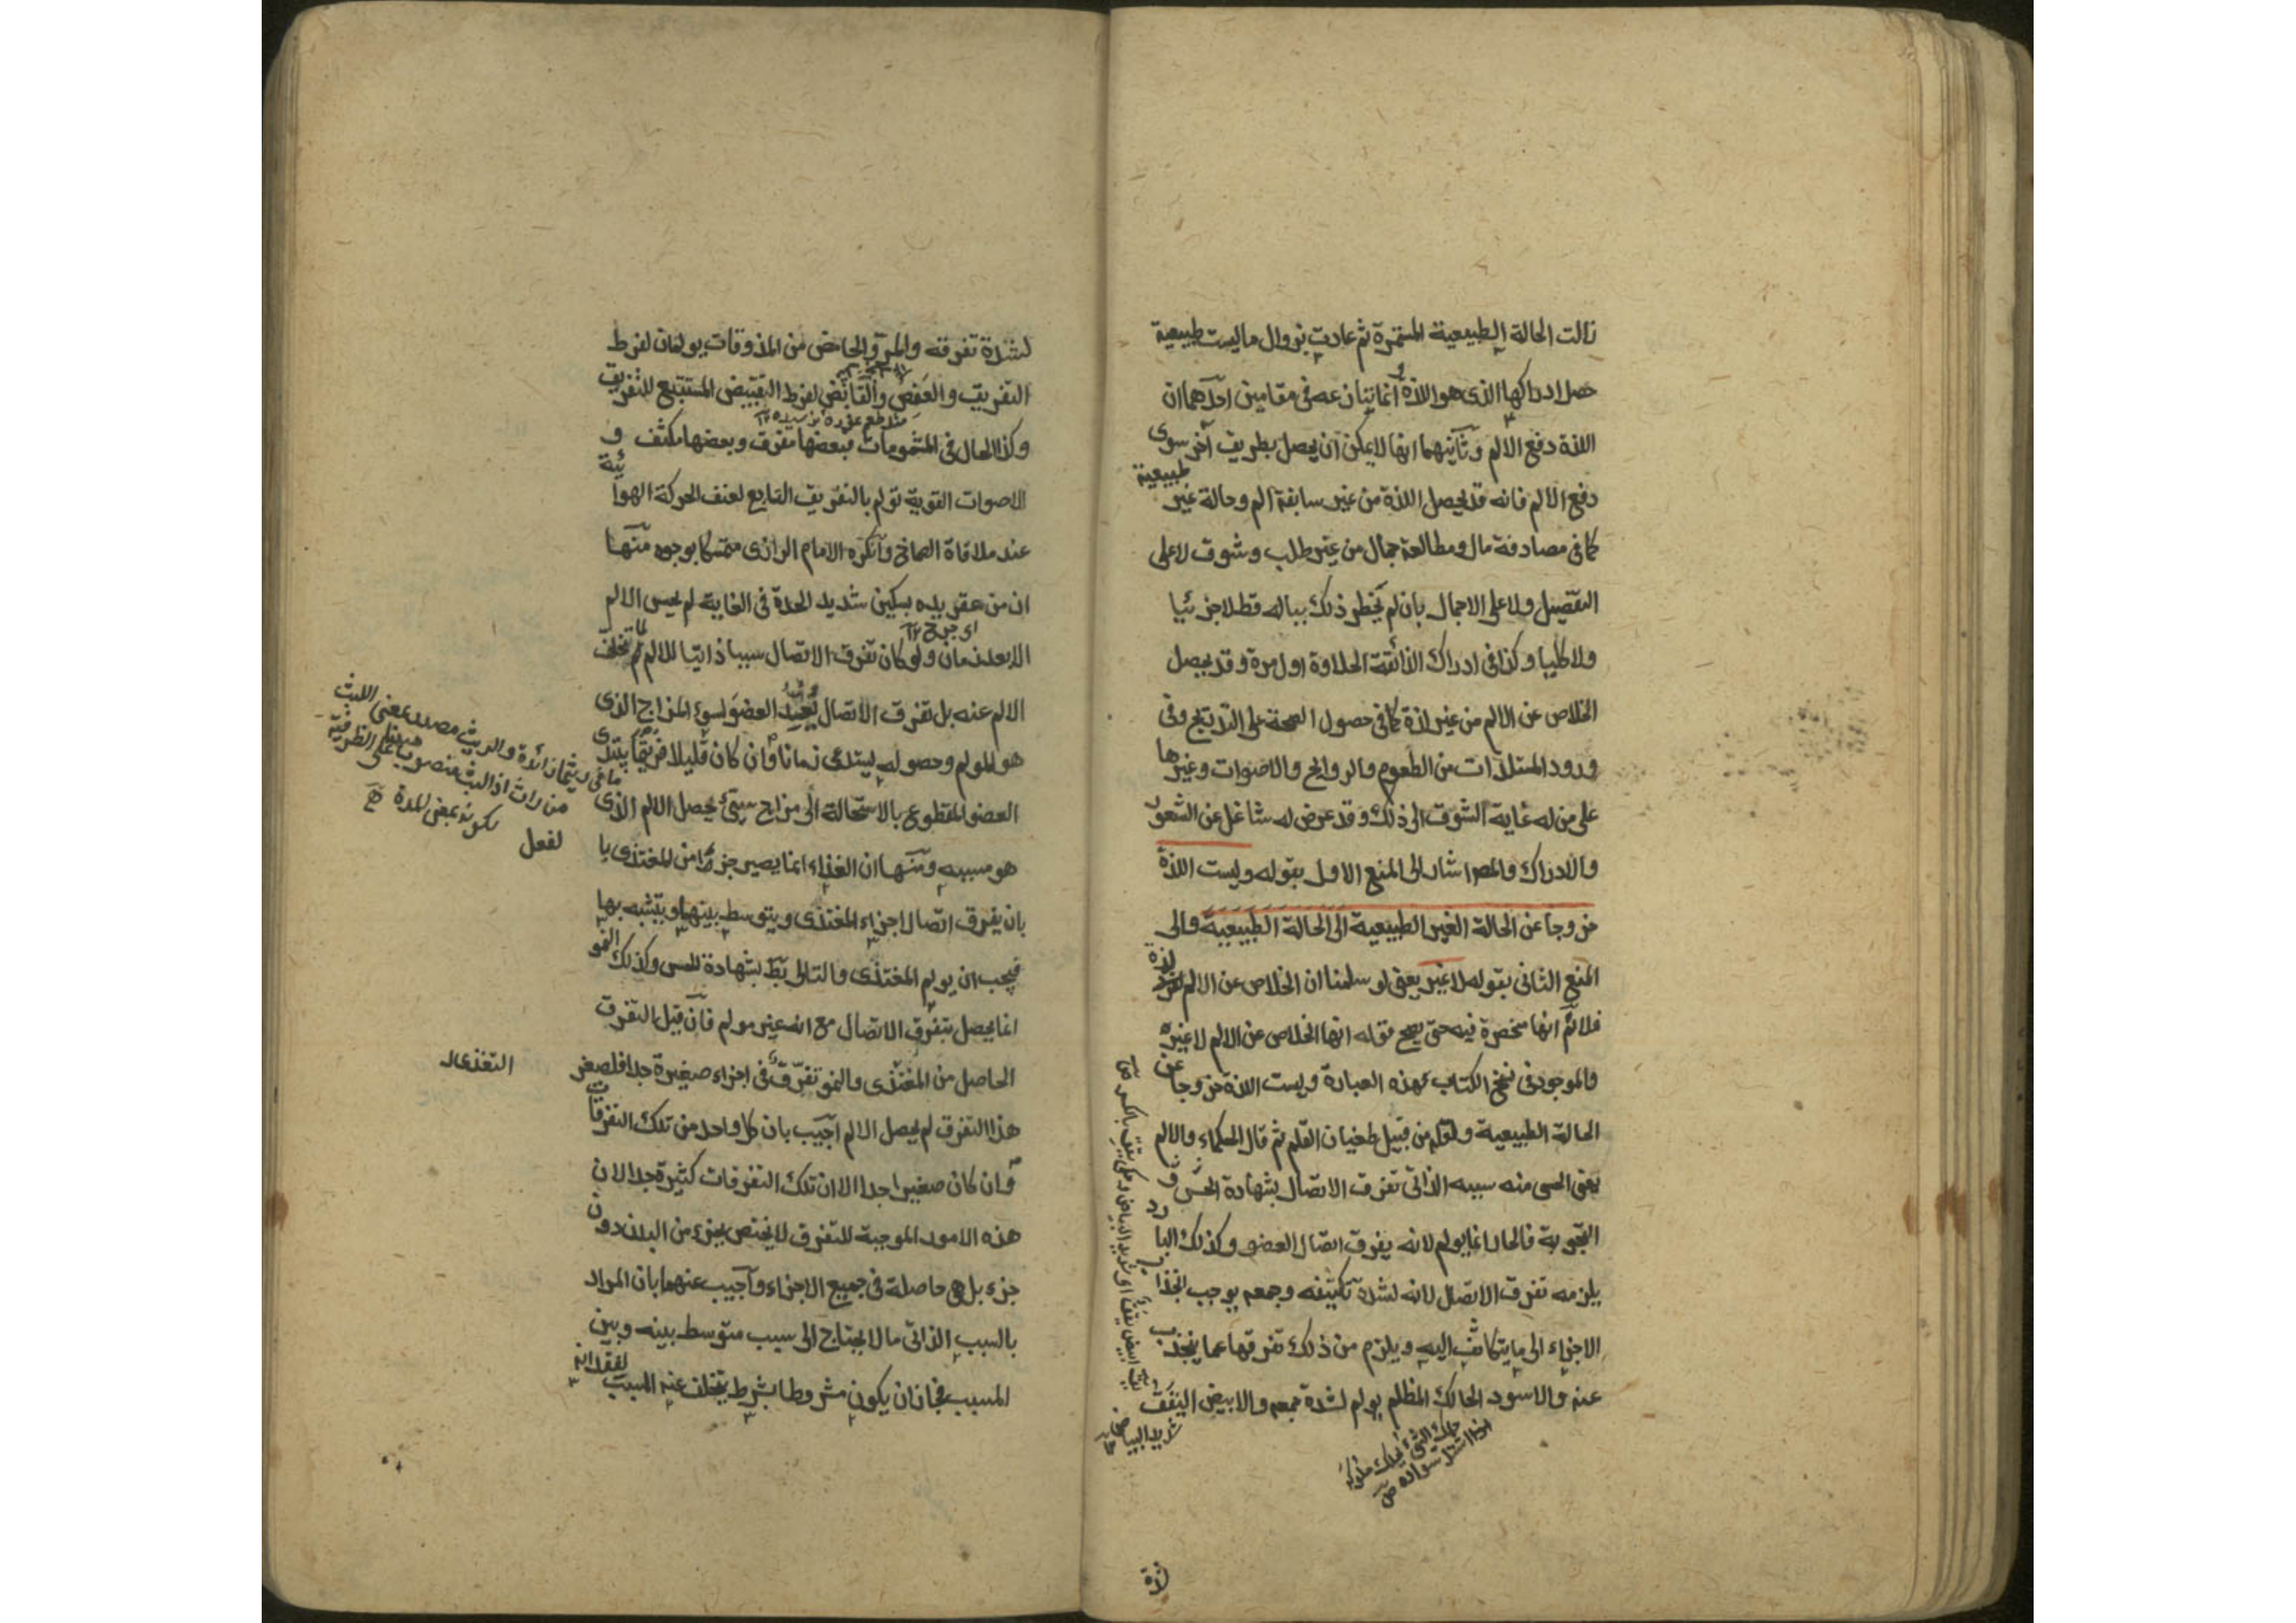 زالت الحالة الطبيعية المستمرة ثم عادت بزوال ما ليست طبيعية
حصل ادراكها الذى هو اللذة انما يتنازعه فى مقامين احدهما ان
اللذة دفع الالم وثانيهما انها لا يمكن ان يحصل بطريق آخر سوى
دفع الالم فانه قد يحصل اللذة من غير سابقة الم وحالة غير طبيعية
كما فى مصادفة مال ومطالعة جمال من غير طلب وشوق لا على
التفصيل ولا على الاجمال بان لم يخطر ذلك بباله قط لا جزئيا
ولا كليا وكذا فى ادراك الذائقة الحلاوة اول مرة وقد يحصل
الخلاص عن الالم من غير لذة كما فى حصول الصحة على التدريج وفى
ورود المستلذات من الطعوم والروايح والاصوات وغيرها
على من له غاية الشوق الى ذلك وقد عرض له شاغل عن الشعور
والادراك والمصر اشار الى المنع الاول بقوله وليست اللذة
خروجا عن الحالة الغير الطبيعية الى الحالة الطبيعية والى
المنع الثانى بقوله لا غير يعنى لو سلمنا ان الخلاص عن الالم لذة
فلانم انها منحصرة فيه حتى يصح قوله انها الخلاص عن الالم لا غيره
والموجود فى نسخ الكتاب بهذه العبارة وليست اللذة خروجا عن
الحالة الطبيعية ولعله من قبيل طغيان القلم ثم قال الحكماء والالم
يعنى الحسى منه سببه الذاتى تفرق الاتصال بشهادة الحس و
التجربة فالحار انما يولم لانه يفرق اتصال العضو وكذلك البارد
يلزمه تفرق الاتصال لانه لشدة تكثيفه وجمعه يوجب انجذاب
الاجزاء الى ما يتكاثف اليه ويلزم من ذلك تفرقها عما ينجذب
عنه والاسود الحالك المظلم يولم لشدة جمعه والابيض اليقق
شديد البياض
حلك الشئ يحلك حلوكة
اذا اشتد سواده
لشدة تفرقه والمر والحامض من المذوقات يولمان لفرط
التفريق والعفص والقابض لفرط التقبيض المستتبع للتفريق
وكذا الحال فى المشمومات فبعضها مفرق وبعضها مكثف و
الاصوات القوية تولم بالتفريق التابع لعنف الحركة الهوائية
عند ملاقاة الصماخ وانكره الامام الرازى متمسكا بوجوه منها
ان من عقر يده بسكين شديد الحدة فى الغاية لم يحس الالم
اى جرح ١٢
الا بعد زمان ولو كان تفرق الاتصال سببا ذاتيا للالم لما تخلف
الالم عنه بل تفرق الاتصال يعد العضو لسوء المزاج الذى
هو المولم وحصوله يستدعى زمانا وان كان قليلا فريثما يبتدى
العضو المقطوع بالاستحالة الى مزاج سيئ يحصل الالم الذى
هو مسببه ومنها ان الغذاء انما يصير جزءا من المغتذى با
بان يفرق اتصال اجزاء المغتذى ويتوسط بينها ويتشبه بها
فيجب ان يولم المغتذى والتالى بط بشهادة الحس وكذلك النمو
انما يحصل بتفرق الاتصال مع انه غير مولم فان قيل التفرق
الحاصل من المغتذى والنمو تفرق فى اجزاء صغيرة جدا فلصغر
هذا التفرق لم يحصل الالم اجيب بان كل واحد من تلك التفرقات
وان كان صغيرا جدا الا ان تلك التفرقات كثيرة جدا لان
هذه الامور الموجبة للتفرق لا يختص بجزء من البدن دون
جزء بل هى حاصلة فى جميع الاجزاء واجيب عنهما بان المراد
بالسبب الذاتى ما لا يحتاج الى سبب متوسط بينه وبين
المسبب فجاز ان يكون مشروطا بشرط يتخلف عنه المسبب لفقدانه